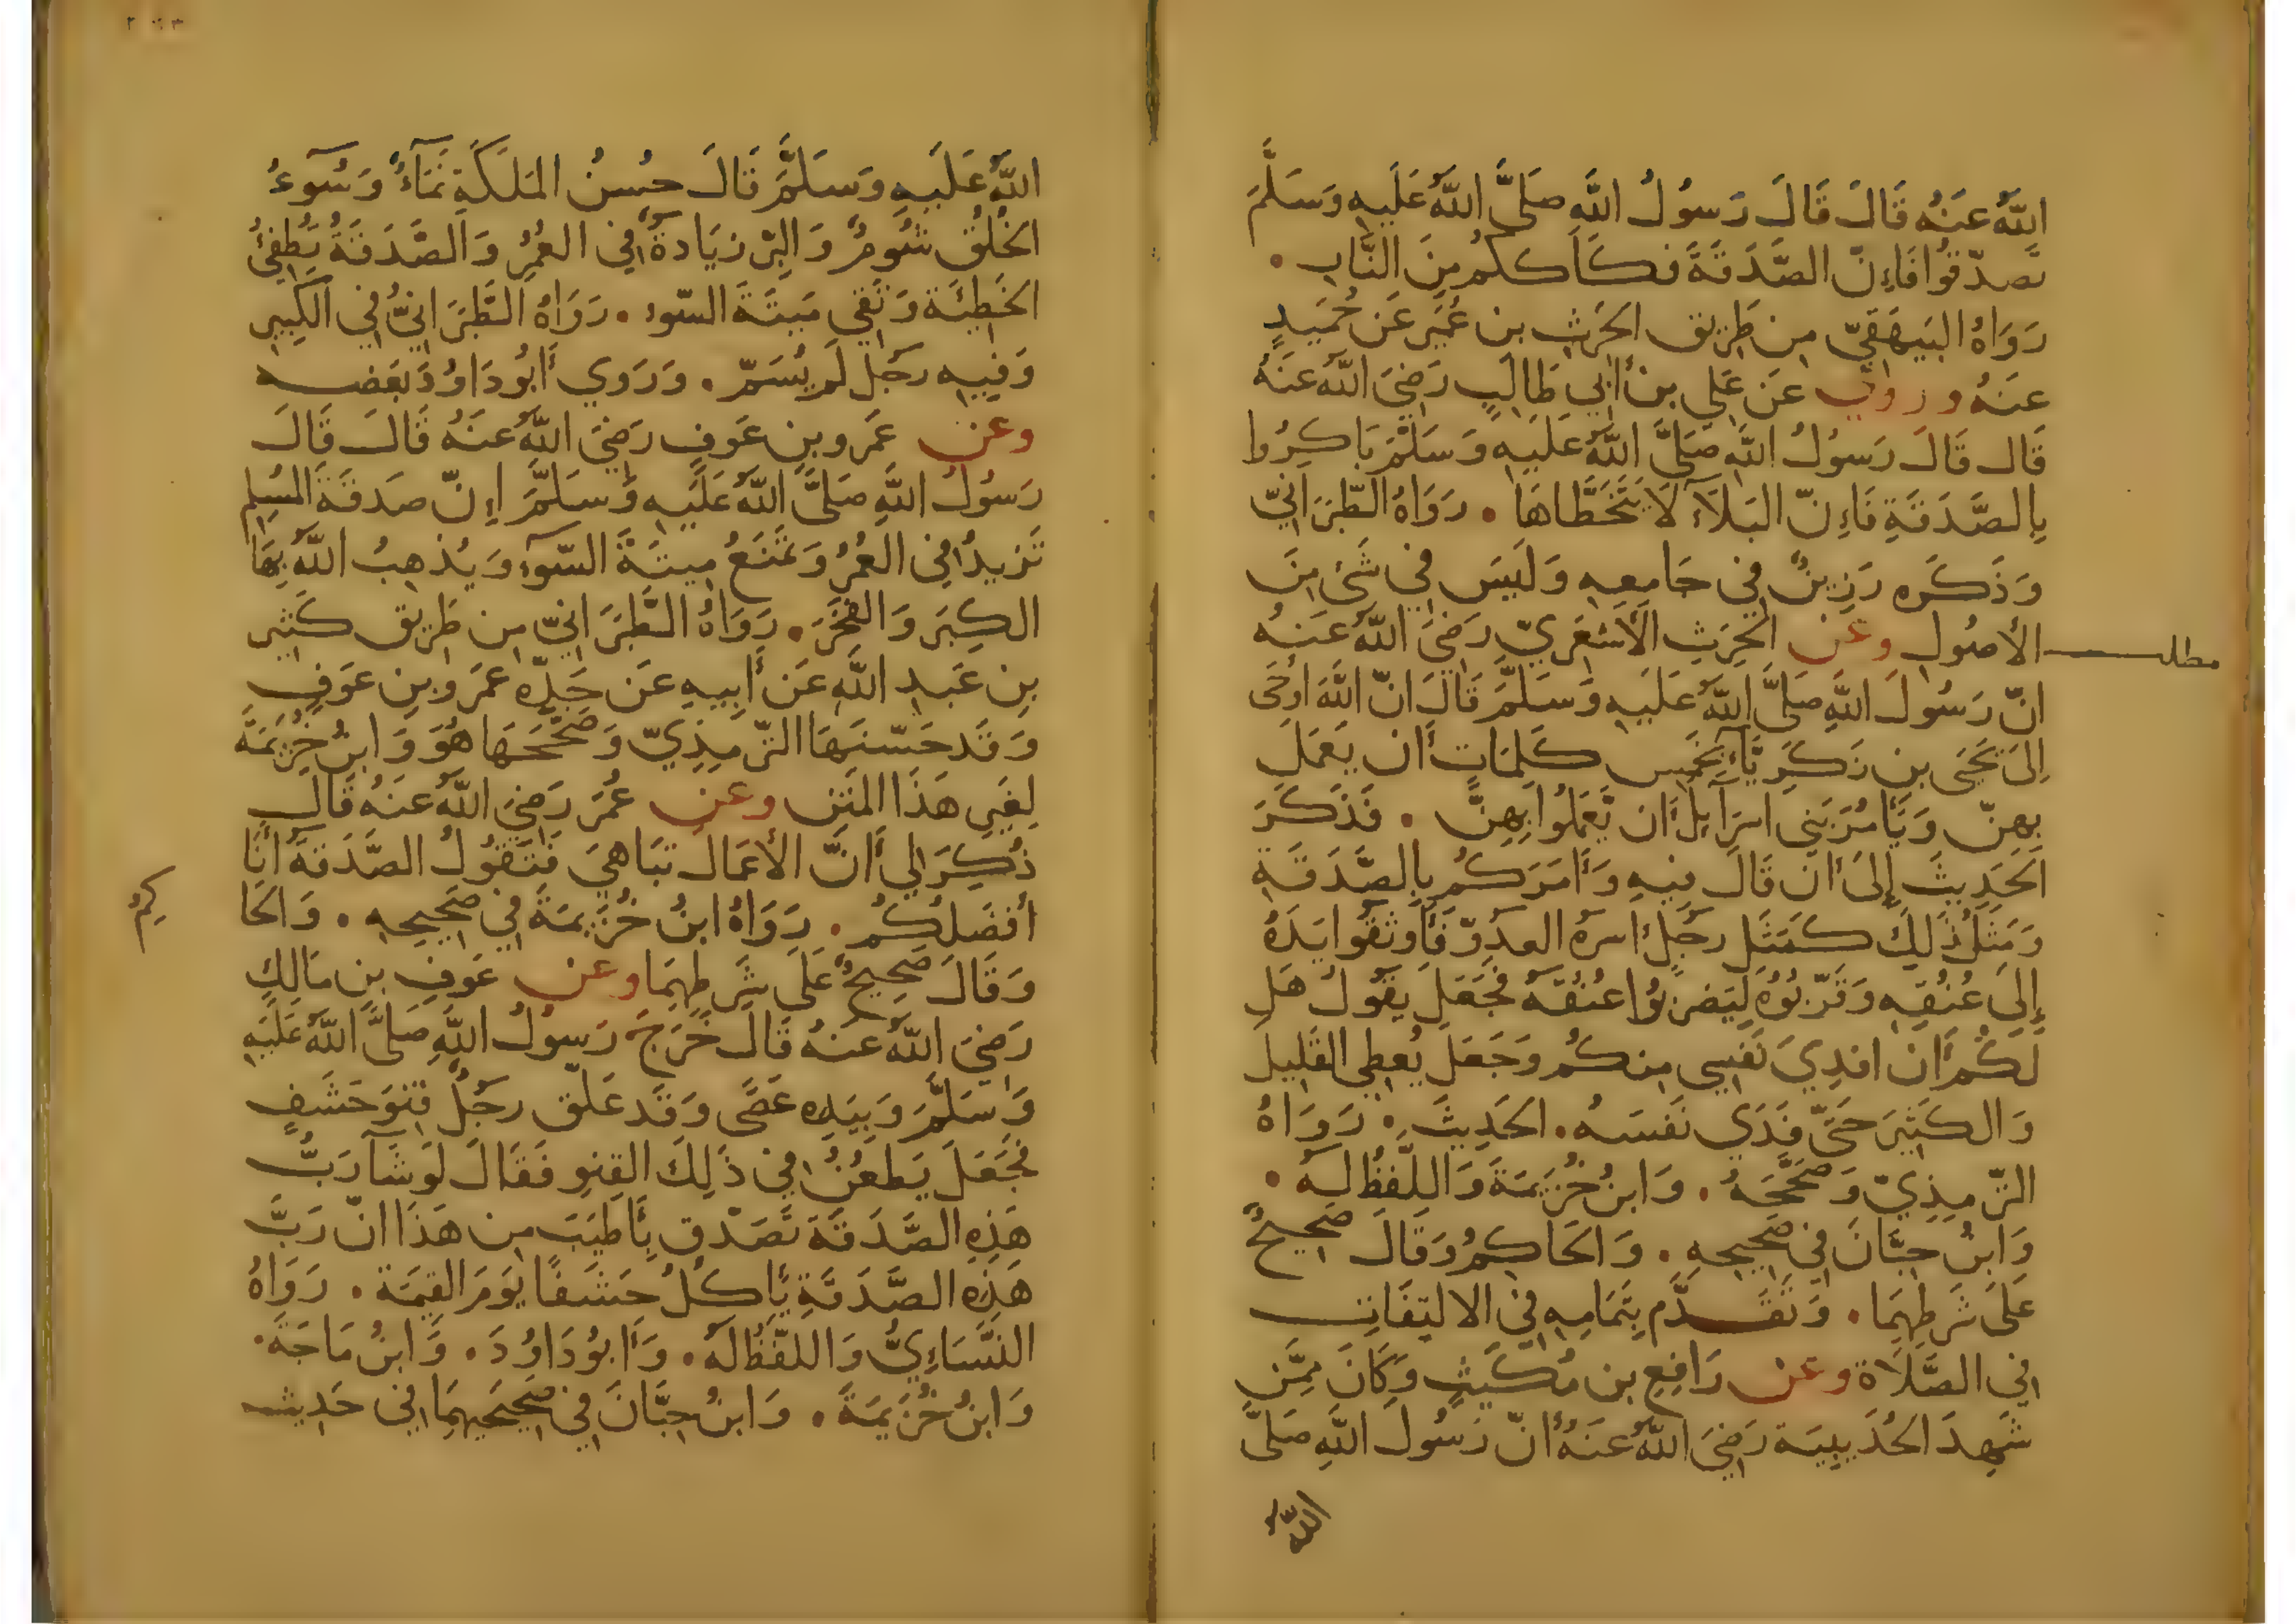 اللَّهُ عَنْهُ قَالَ قَالَ رَسُولُ اللَّهِ صَلَّى اللَّهُ عَلَيهِ وَسَلَّمَ
تَصدّقُوا فَإِنّ الصَّدَقَةَ فكَاَككُم مِنَ النَّارِ .
رَوَاهُ البَيهَقِيّ مِن طَرِيق الحَرِثِ بن عُمَير عَن حُمَيدٍ
عَنهُ وروي عَن عَلي بن أَبي طَالِبٍ رَضِيَ اللَّه عَنهُ
قَال قَالَ رَسُولُ اللَّهِ صَلَّى اللَّهُ عَلَيهِ وَسَلَّمَ بَاكِرُوا
بِالصَّدَقَةِ فَإِنّ البَلَآءَ لَا يَتَخَطَّاهَا . رَوَاهُ الطَّبَرَانيّ
وَذَكَره رَزِينٌ في جَامِعِهِ وَلَيسَ في شَئ مِنَ
الأصُولِ وعن الحَرِثِ الأَشعَرِيّ رَضِيَ اللَّهُ عَنهُ
مطلب
انّ رَسُولَ اللَّهِ صَلَّى اللَّهُ عَلَيهِ وَسَلَّمَ قَالَ انّ اللَّهَ اوحَى
إلىَ يَحيَى بن زَكَرِيَّآءَ بِخَمسِ كَلِمَاتٍ أَن يَعمَلَ
بِهِنّ وَيَأمُرَ بَنِي اسرَآءِيلَ أَن يَعمَلُوا بِهِنَّ . فَذَكَرَ
الحَدِيثَ إِلىَ أَن قَالَ فِيهِ وَأَمَرَكُم بِالصَّدَقَةِ
وَمَثَلُ ذَلِكَ كَمَثَل رَجُلٍ اسرَهُ العَدوّ فَأَوثَقُوا يَدَهُ
إِلىَ عُنُقِهِ وَقَرّبُوهُ لِيَضرِبُوا عُنُقَهُ فجَعَلَ يَقُولُ هَل
لَكُم أَن افدِيَ نَفسِي مِنكُم وَجَعَلَ يُعطِي القَلِيلَ
وَالكَثِيَر حَتَّى فَدَي نَفسَهُ . الحَدِيثَ . رَوَاهُ
التّرمِذِيّ وَصَحَّحَهُ . وَابنُ خُزَيمَةَ وَاللَّفظُ لَهُ .
وَابنُ حِبَّانَ في صَحِيحِهِ . وَالحَاكِمُ وَقَالَ صَحِيحٌ
عَلىَ شَرطِهِمَا . وَتَقَدَّم بِتَمَامِهِ في الالتِفَاتِ
في الصَّلَاة وعن رَافِعِ بن مَكَيثٍ وَكَانَ مِمَّن
شَهِدَ الحُدَيبِيَة رَضِيَ اللَّهُ عَنهُ أَنّ رَسُولَ اللَّهِ صَلَّى
اللَّه
اللَّهُ عَلَيهِ وَسَلَّمَ قَالَ حُسنُ المَلَكَةِ نَمَآءٌ وَسُوءُ
الخُلُق شُومٌ وَالبِرّ زيَادةٌ في العُمُرِ وَالصَّدَقَةُ تُطفِئُ
الخَطِيَّة وَتَقِي مِيتَةَ السّوء . رَوَاهُ الطَّبَرَانيُّ في الكَبِيرِ
وَفِيهِ رَجُل لَم يُسَمّ . وَرَوي أَبُو دَاوُدَ بَعضَهُ
وعن عَمرو بنِ عَوفٍ رَضِيَ اللَّهُ عَنهُ قَالَ قَالَ
رَسُولُ اللَّهِ صَلَّى اللَّهُ عَلَيهِ وَسَلَّمَ إِنّ صَدقَةَ المُسلِمِ
تَزِيدُ في العُمُرِ وَتَمنَعُ مِيتَةَ السّوَءِ وَيُذهِبُ اللَّهُ بِهَا
الكِبَر وَالفَخرَ . رَوَاهُ الطَّبَرَانيّ مِن طَرِيق كَثِيرِ
بنِ عَبدِ اللَّهِ عَن أَبِيهِ عَن جَدِّه عَمرو بنِ عَوفٍ
وَقَد حَسّنَهَا التّرمِذِيّ وَصَحَّحَهَا هُوَ وَابنُ خُزَيمَةَ
لِغَيرِ هَذَا المَتن وعن عُمَرَ رَضِيَ اللَّهُ عَنهُ قَالَ
ذُكِرَ لِي أَنَّ الأَعمَال تبَاهَي فَتَقُولُ الصَّدَقةُ أَنَا
أفضَلُكُم . رَوَاهُ ابنُ خُزَيمَةَ في صَحِيحِهِ . وَالحَا
كِمُ
وَقَالَ صَحِيحٌ عَلىَ شَرطِهِمَا وعن عَوفِ بنِ مَالِكٍ
رَضِيَ اللَّهُ عَنهُ قَالَ خَرَجَ رَسُولُ اللَّهِ صَلَّى اللَّهُ عَلَيهِ
وَسَلَّمَ وَبِيَدِه عَصًى وَقَد عَلّق رجُلٌ قِنوَ حَشَفٍ
فجَعَلَ يَطعَنُ في ذَلِكَ القِنوِ فَقَالَ لَو شَآ رَبُّ
هَذِهِ الصَّدَقَةِ تَصَدَّق بِأَطيَبَ مِن هَذَا انّ رَبَّ
هَذِهِ الصَّدَقَةِ يَأكُلُ حَشَفًا يَومَ القِيمَة . رَوَاهُ
النَّسَاءِيُّ وَاللفظُ لَهُ . وَأَبُو دَاوُدَ . وَابنُ مَاجَة .
وَابنُ خُزَيمَةَ . وَابنُ حِبَّانَ في صَحِيحَيهِمَا في حَدِيثٍ